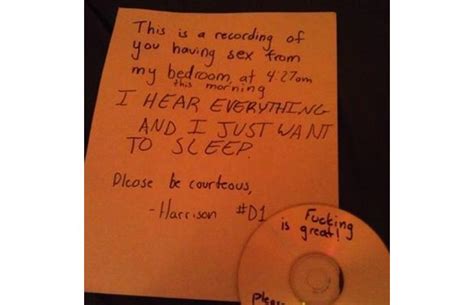 This is a recording of
you having sex from
my bedroom, at 4:27am
this morning
I HEAR EVERYTHING
AND I JUST WANT
TO SLEEP.
Please be courteous,
- Harrison #D1
Fucking
is great!
please